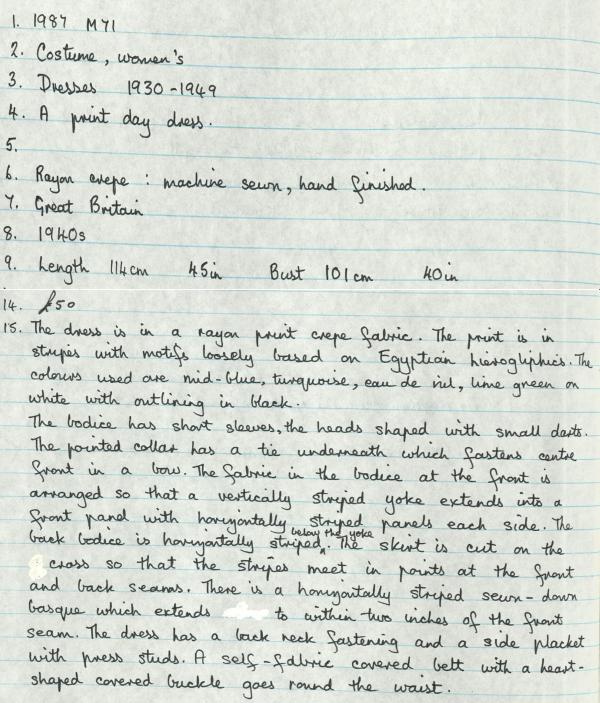 1. 1987 M71
2. Costume, women's
3. Dresses 1930-1949
4. A print day dress.
5.
6. Rayon crepe : machine sewn, hand finished.
7. Great Britain
8. 1940s
9. Length 114cm 45in Bust 101cm 40in
14. £50
15. The dress is in a rayon print crepe fabric. The print is in
stripes with motifs loosely based on Egyptian hierogliphics. The
colours used are mid-blue, turquoise, eau de nil, lime green on
white with outlining in black.
The bodice has short sleeves, the heads shaped with small darts.
The pointed collar has a tie underneath which fastens centre
front in a bow. The fabric in the bodice at the front is
arranged so that a vertically striped yoke extends into a
front panel with horizontally striped panels each side. The
below the yoke
back bodice is horizontally striped. The skirt is cut on the
cross so that the stripes meet in points at the front
and back seams. There is a horizontally striped sewn-down
basque which extends to within two inches of the front
seam. The dress has a back neck fastening and a side placket
with press studs. A self-fabric covered belt with a heart-
shaped covered buckle goes round the waist.